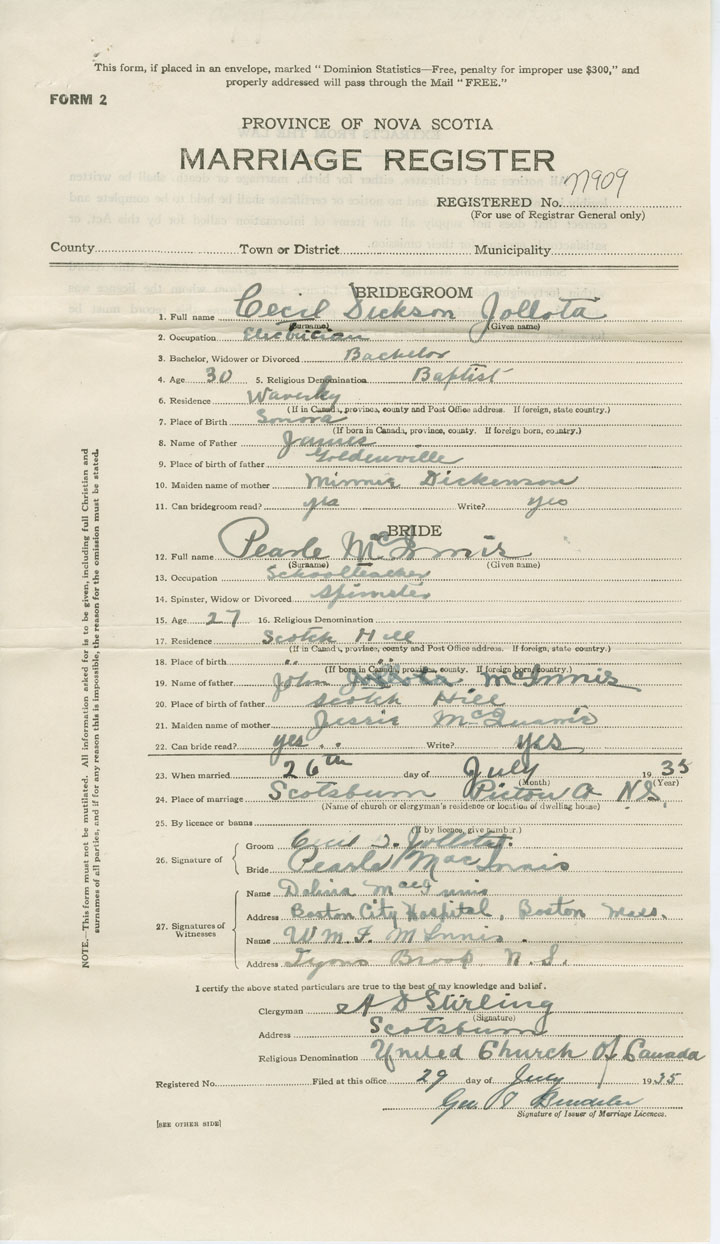 This form, if placed in an envelope, marked " Dominion Statistics—Free, penalty for improper use $300," and
properly addressed will pass through the Mail " FREE."
FORM 2
PROVINCE OF NOVA SCOTIA
MARRIAGE REGISTER
REGISTERED No. 77909
(For use of Registrar General only)
County Town or District Municipality
BRIDEGROOM
1. Full name Cecil Dickson Jollota
(Surname) (Given name)
2. Occupation Electrician
3. Bachelor, Widower or Divorced Bachelor
4. Age 30 5. Religious Denomination Baptist
6. Residence Waverley
(If in Canada, province, county and Post Office address. If foreign, state country.)
7. Place of Birth Sonora
(If born in Canada, province, county. If foreign born, country.)
8. Name of Father James
9. Place of birth of father Goldenville
10. Maiden name of mother Minnie Dickenson
11. Can bridegroom read? yes Write? yes
BRIDE
12. Full name Pearle McInnis
(Surname) (Given name)
13. Occupation Schoolteacher
14. Spinster, Widow or Divorced Spinster
15. Age 27 16. Religious Denomination
17. Residence Scotch Hill
(If in Canada, province, county and Post Office address. If foreign, state country.)
18. Place of birth " "
(If born in Canada, province, county. If foreign born, country.)
19. Name of father John McInnis
20. Place of birth of father Scotch Hill
21. Maiden name of mother Jessie
22. Can bride read? yes Write? yes
23. When married 26th day of July 1935
(Month) (Year)
24. Place of marriage Scotsburn Pictou Co N.S.
(Name of church or clergyman's residence or location of dwelling house)
25. By licence or banns
(If by licence, give number.)
26. Signature of
Groom Cecil D. Jollota
Bride Pearle MacInnis
27. Signatures of Witnesses
Name MacInnis
Address Boston City Hospital, Boston Mass.
Name W M. F. McInnis
Address Lyons Brook N.S.
I certify the above stated particulars are true to the best of my knowledge and belief.
Clergyman A D Stirling
(Signature)
Address Scotsburn
Religious Denomination United Church Of Canada
Registered No. Filed at this office 29 day of July 1935
Geo.
Signature of Issuer of Marriage Licences.
[SEE OTHER SIDE]
NOTE.—This form must not be mutilated. All information asked for is to be given, including full Christian and
surnames of all parties, and if for any reason this is impossible, the reason for the omission must be stated.